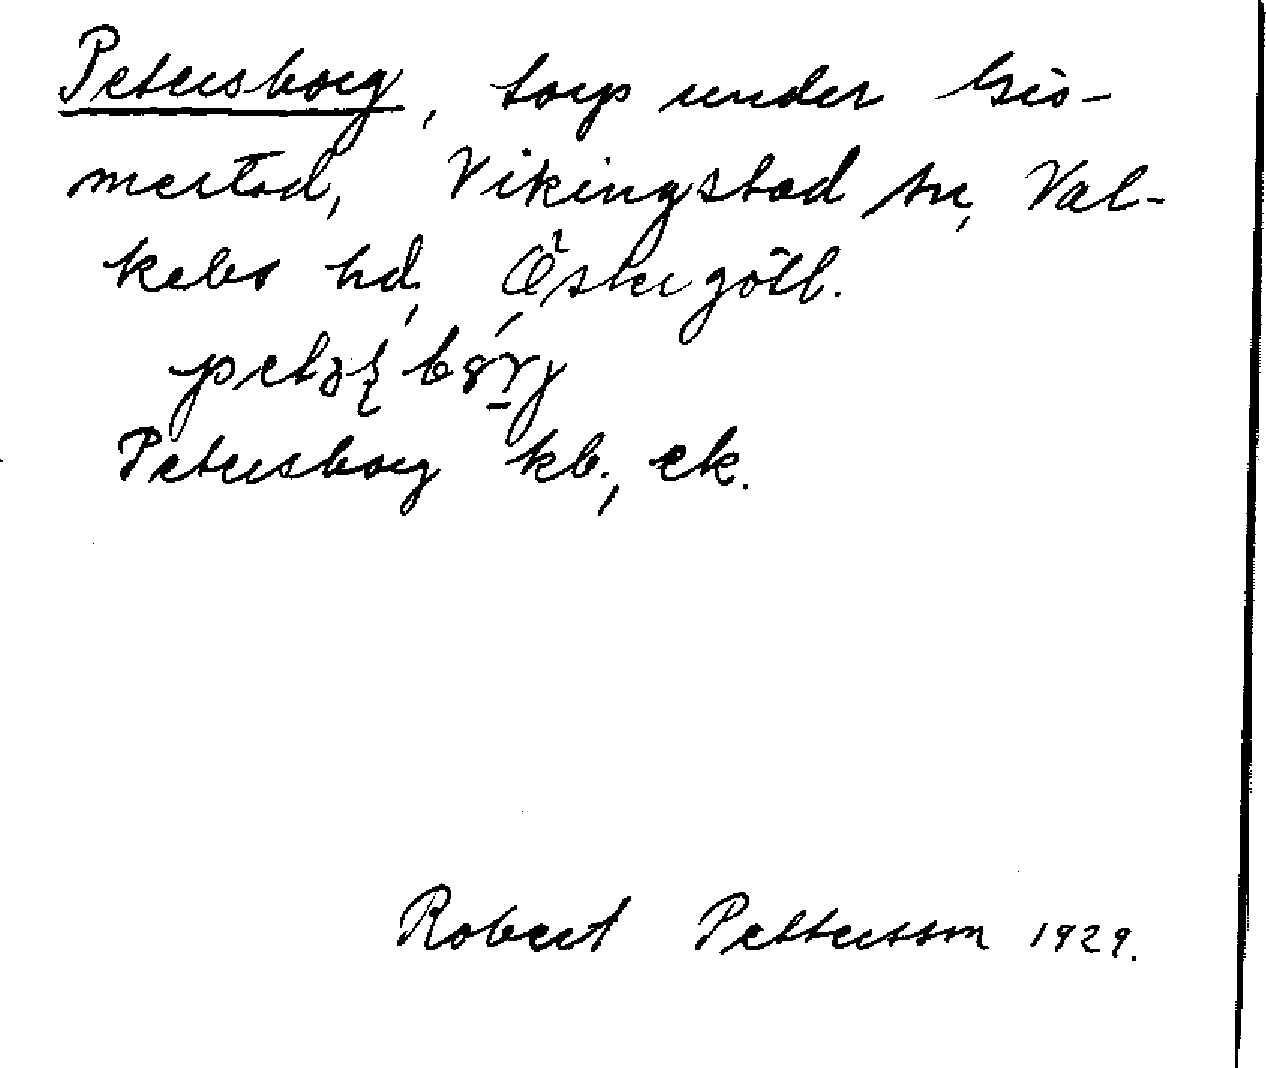 Petersborg, torp under Gis-
mestad, Vikingstad sn, Val-
kebo hd, Östergötl.
Petersborg kb., ek.
Robert Pettersson 1929.